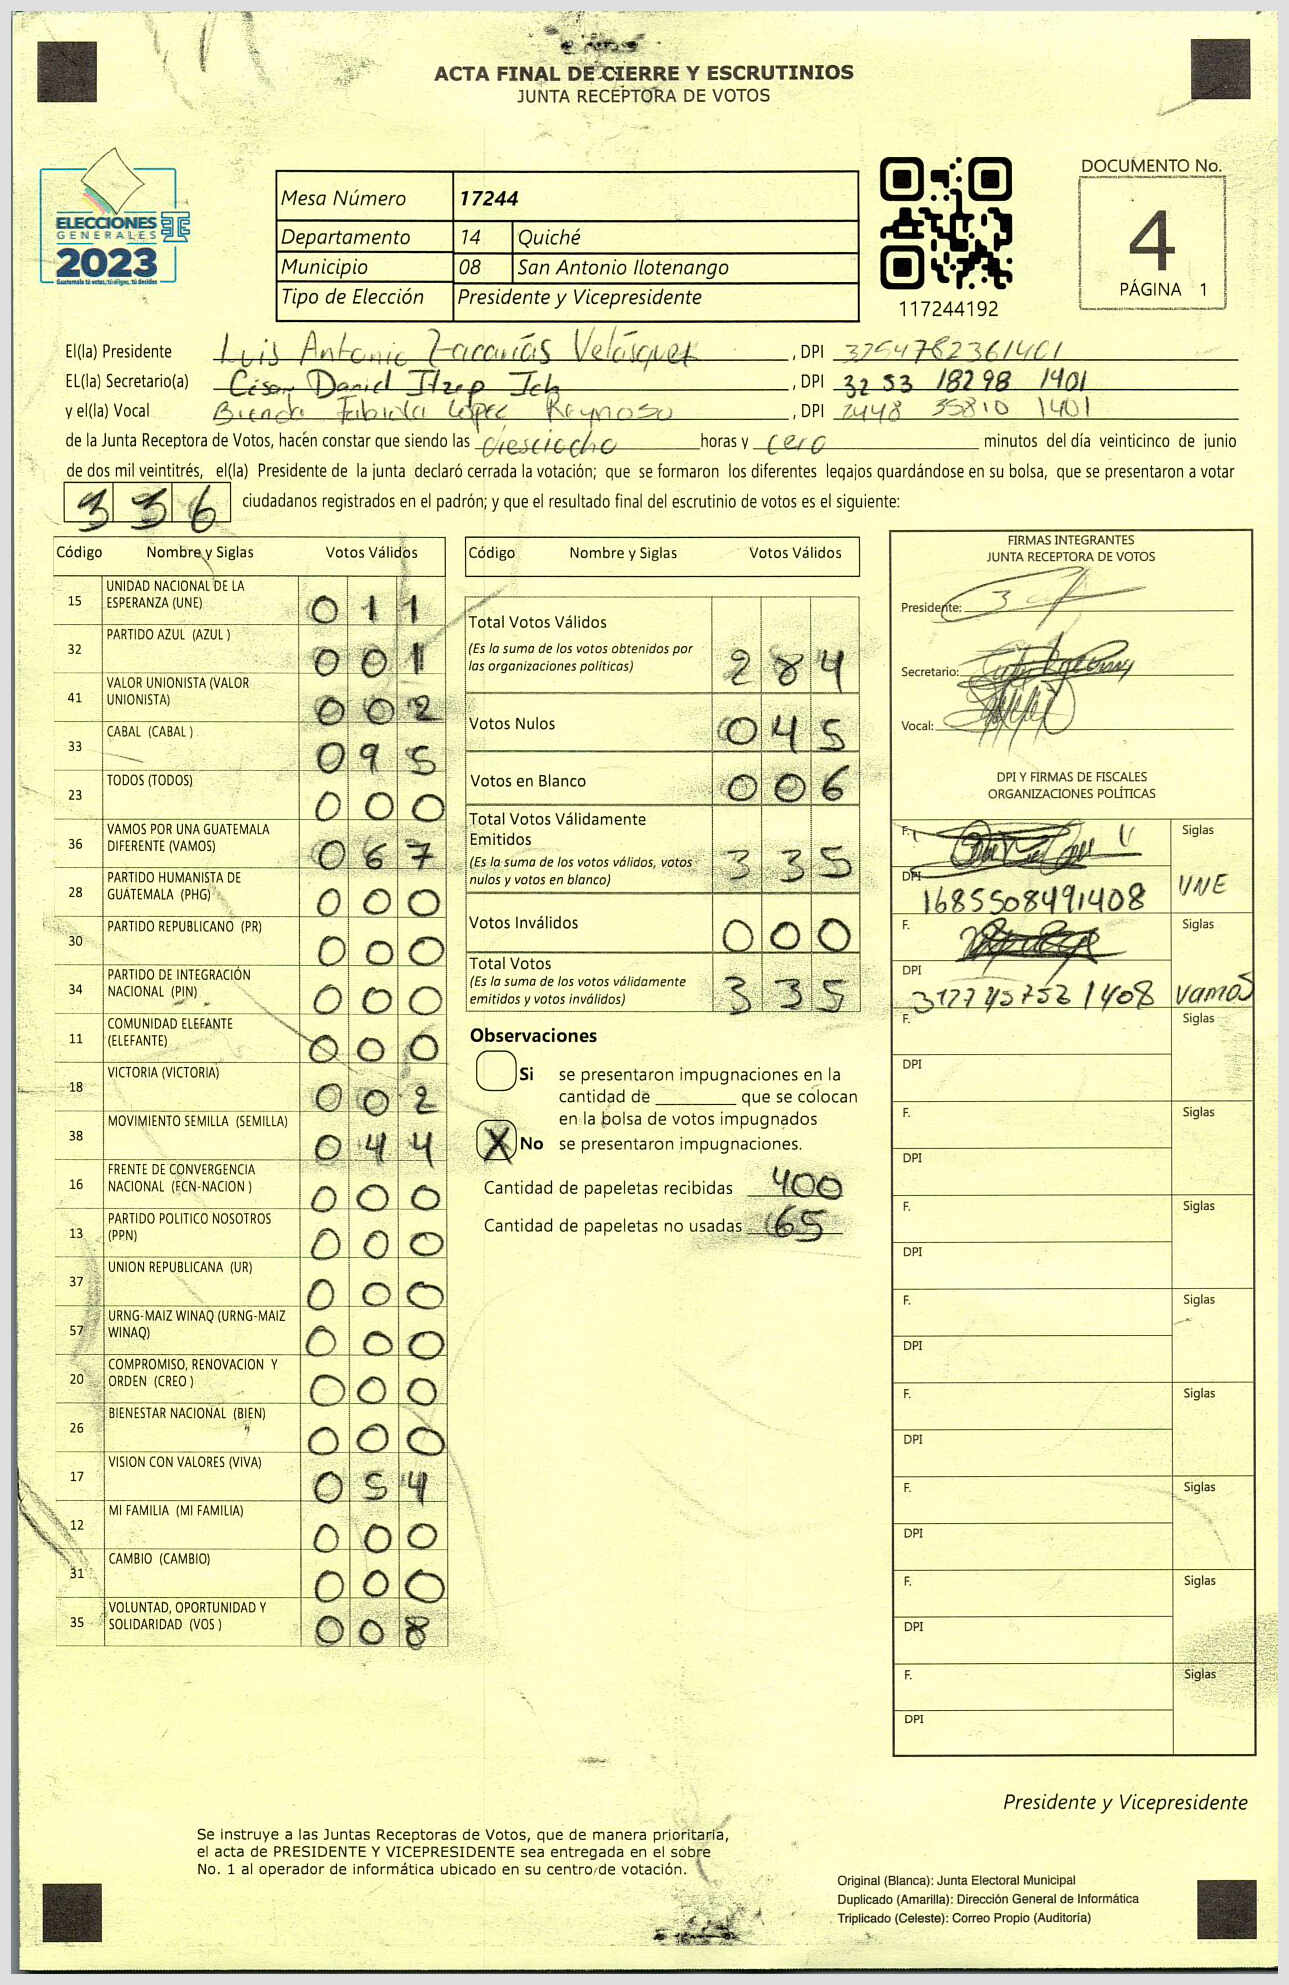 ACTA FINAL DE CIERRE Y ESCRUTINIOS
JUNTA RECEPTORA DE VOTOS
ELECCIONES
GENERALES
2023
Guatemala tú votas, tú eliges, tú decides
Mesa Número 17244
Departamento 14 Quiché
Municipio 08 San Antonio Ilotenango
Tipo de Elección Presidente y Vicepresidente
117244192
DOCUMENTO No.
4
PÁGINA 1
El(la) Presidente Luis Antonio Zacarías Velásquez , DPI 3254782361401
EL(la) Secretario(a) César Daniel Itzep Ich , DPI 3253 18298 1401
y el(la) Vocal Brenda Fabiola López Reynoso , DPI 2448 35810 1401
de la Junta Receptora de Votos, hacén constar que siendo las diesciocho horas y cero minutos del día veinticinco de junio
de dos mil veintitrés, el(la) Presidente de la junta declaró cerrada la votación; que se formaron los diferentes legajos quardándose en su bolsa, que se presentaron a votar
336 ciudadanos registrados en el padrón; y que el resultado final del escrutinio de votos es el siguiente:
Código Nombre y Siglas Votos Válidos
15 UNIDAD NACIONAL DE LA ESPERANZA (UNE) 011
32 PARTIDO AZUL (AZUL ) 001
41 VALOR UNIONISTA (VALOR UNIONISTA) 002
33 CABAL (CABAL ) 095
23 TODOS (TODOS) 000
36 VAMOS POR UNA GUATEMALA DIFERENTE (VAMOS) 067
28 PARTIDO HUMANISTA DE GUATEMALA (PHG) 000
30 PARTIDO REPUBLICANO (PR) 000
34 PARTIDO DE INTEGRACIÓN NACIONAL (PIN) 000
11 COMUNIDAD ELEFANTE (ELEFANTE) 000
18 VICTORIA (VICTORIA) 002
38 MOVIMIENTO SEMILLA (SEMILLA) 044
16 FRENTE DE CONVERGENCIA NACIONAL (FCN-NACION ) 000
13 PARTIDO POLITICO NOSOTROS (PPN) 000
37 UNION REPUBLICANA (UR) 000
57 URNG-MAIZ WINAQ (URNG-MAIZ WINAQ) 000
20 COMPROMISO, RENOVACION Y ORDEN (CREO ) 000
26 BIENESTAR NACIONAL (BIEN) 000
17 VISION CON VALORES (VIVA) 054
12 MI FAMILIA (MI FAMILIA) 000
31 CAMBIO (CAMBIO) 000
35 VOLUNTAD, OPORTUNIDAD Y SOLIDARIDAD (VOS ) 008
Código Nombre y Siglas Votos Válidos
Total Votos Válidos 284
(Es la suma de los votos obtenidos por
las organizaciones políticas)
Votos Nulos 045
Votos en Blanco 006
Total Votos Válidamente
Emitidos 335
(Es la suma de los votos válidos, votos
nulos y votos en blanco)
Votos Inválidos 000
Total Votos 335
(Es la suma de los votos válidamente
emitidos y votos inválidos)
Observaciones
Si se presentaron impugnaciones en la
cantidad de que se colocan
en la bolsa de votos impugnados
X No se presentaron impugnaciones.
Cantidad de papeletas recibidas 400
Cantidad de papeletas no usadas 65
FIRMAS INTEGRANTES
JUNTA RECEPTORA DE VOTOS
Presidente:
Secretario:
Vocal:
DPI Y FIRMAS DE FISCALES
ORGANIZACIONES POLÍTICAS
F. Siglas
DPI 1685508491408 UNE
F. Siglas
DPI vamos
F. Siglas
DPI
F. Siglas
DPI
F. Siglas
DPI
F. Siglas
DPI
F. Siglas
DPI
F. Siglas
DPI
F. Siglas
DPI
F. Siglas
DPI
Presidente y Vicepresidente
Se instruye a las Juntas Receptoras de Votos, que de manera prioritaria,
el acta de PRESIDENTE Y VICEPRESIDENTE sea entregada en el sobre
No. 1 al operador de informática ubicado en su centro de votación.
Original (Blanca): Junta Electoral Municipal
Duplicado (Amarilla): Dirección General de Informática
Triplicado (Celeste): Correo Propio (Auditoría)